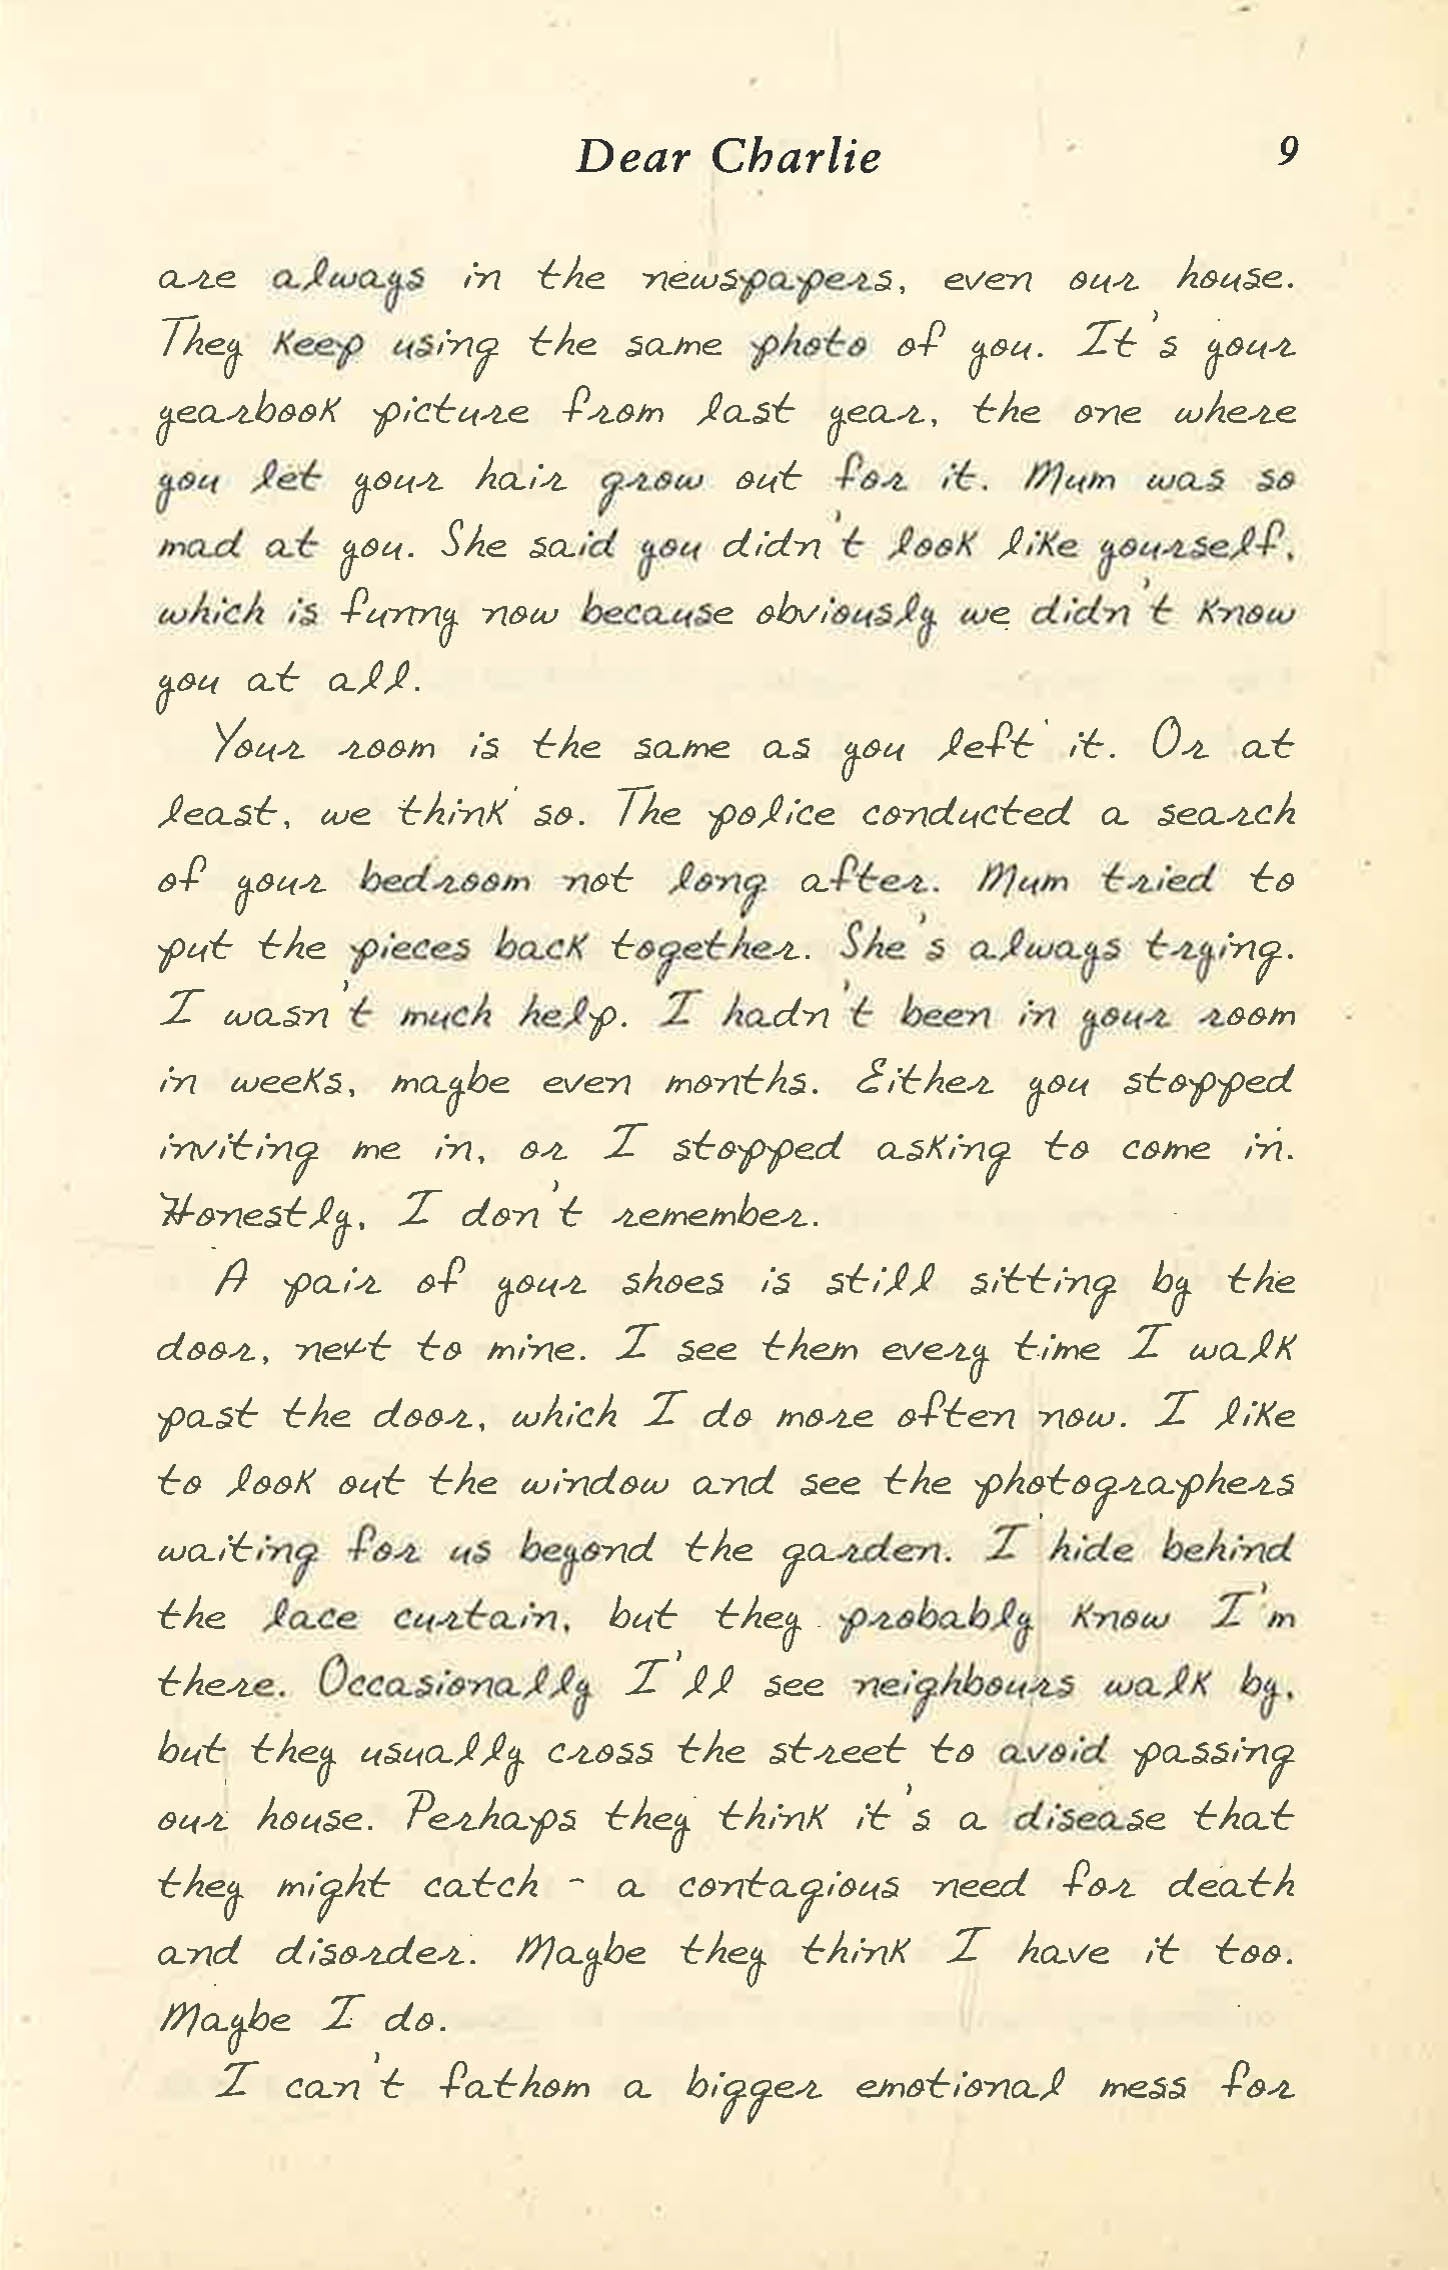 Dear Charlie 9
are always in the newspapers, even our house.
They keep using the same photo of you. It's your
yearbook picture from last year, the one where
you let your hair grow out for it. Mum was so
mad at you. She said you didn't look like yourself,
which is funny now because obviously we didn't know
you at all.
Your room is the same as you left it. Or at
least, we think so. The police conducted a search
of your bedroom not long after. Mum tried to
put the pieces back together. She's always trying.
I wasn't much help. I hadn't been in your room
in weeks, maybe even months. Either you stopped
inviting me in, or I stopped asking to come in.
Honestly, I don't remember.
A pair of your shoes is still sitting by the
door, next to mine. I see them every time I walk
past the door, which I do more often now. I like
to look out the window and see the photographers
waiting for us beyond the garden. I hide behind
the lace curtain, but they probably know I'm
there. Occasionally I'll see neighbours walk by,
but they usually cross the street to avoid passing
our house. Perhaps they think it's a disease that
they might catch - a contagious need for death
and disorder. Maybe they think I have it too.
Maybe I do.
I can't fathom a bigger emotional mess for